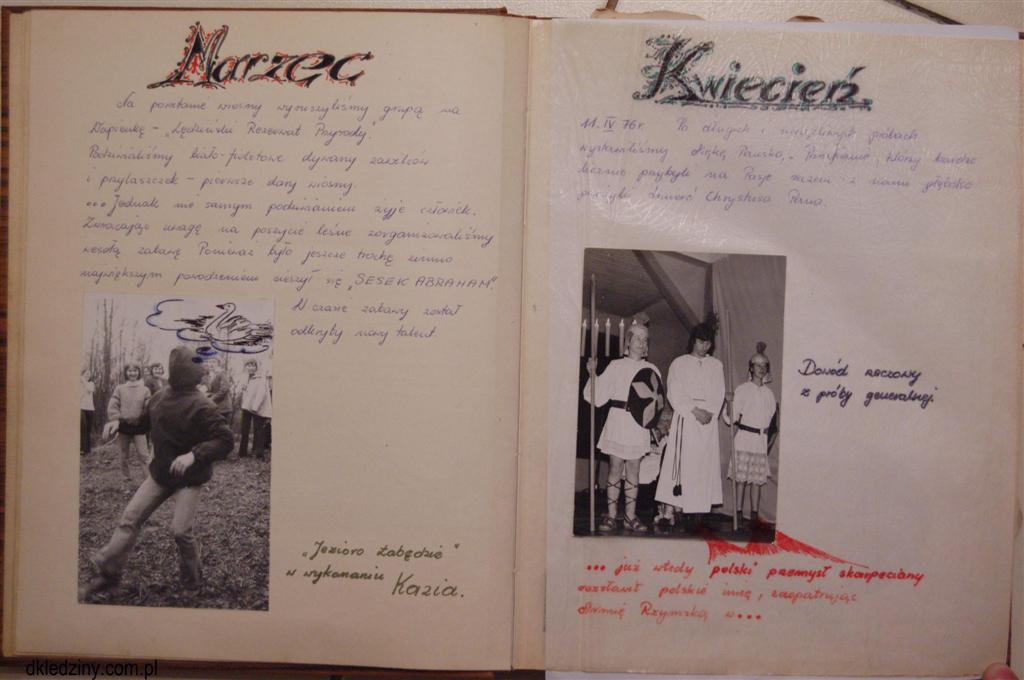 Marzec
Na powitanie wiosny wyruszyliśmy grupą na
Wapionkę - "Lędziński Rezerwat Przyrody".
Podziwialiśmy biało-fioletowe dywany zawilców
i przylaszczek - pierwsze dary wiosny.
... Jednak nie samym podziwianiem żyje człowiek.
Zwracając uwagę na poszycie leśne zorganizowaliśmy
wesołą zabawę. Ponieważ było jeszcze trochę zimno
największym powodzeniem cieszył się "SESEK ABRAHAM".
W czasie zabawy został
odkryty nowy talent.
"Jezioro Łabędzie"
w wykonaniu Kazia.
Kwiecień
11.IV 76r. Po długich i prób­ach
wystawiliśmy Męką Pańską. Parafianie, którzy bardzo
licznie przybyli na Pasję razem z nami głęboko
przeżyli śmierć Chrystusa Pana.
Dowód rzeczowy
z próby generalnej.
... już wtedy polski przemysł skarpeciany
rozsławił polskie imię, zaopatrując
Armię Rzymską w...
dkledziny.com.pl